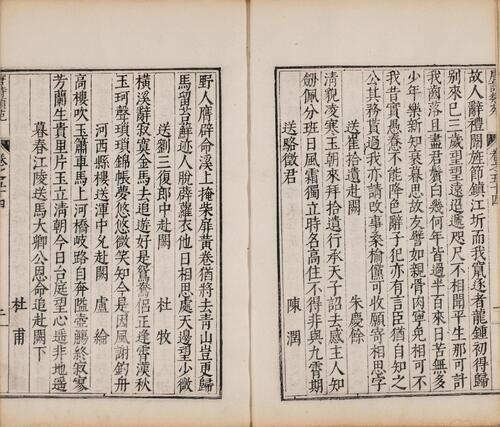 故人辭禮闈旌節鎮江圻而我竄逐者龍鍾初得歸
別來已三歲望望遠迢遞咫尺不相聞平生那可計
我齒落且盡君鬢白幾何年皆過半百來日苦無多
少年樂新知衰暮思故友譬如親骨肉寧免相可不
我昔實愚惷不能降色辭子犯亦有言臣猶自知之
公其務貰過我亦請改事桑榆儻可收願寄相思字
送崔拾遺赴闕
朱慶餘
清貌凌寒玉朝來拜拾遺行承天子詔去感主人知
劍佩分班日風霜獨立時名高住不得非與九霄期
送駱徵君
陳潤
野人膺辟命溪上掩柴扉黃卷猶將去青山豈更歸
馬留苔蘚迹人脫薜蘿衣他日相思處天邊望少微
送劉三復郎中赴闕
杜牧
橫溪辭寂寞金馬去追遊好是鴛鴦侶正逢霄漢秋
玉珂聲瑣瑣錦帳夢悠悠微笑知今是因風謝釣舟
河西縣樓送渾中允赴闕
盧綸
高樓吹玉簫車馬上河橋岐路自奔隘壺觴終寂寥
芳蘭生貴里片玉立清朝今日台庭望心遙非地遙
暮春江陵送馬大卿公恩命追赴闕下
杜甫